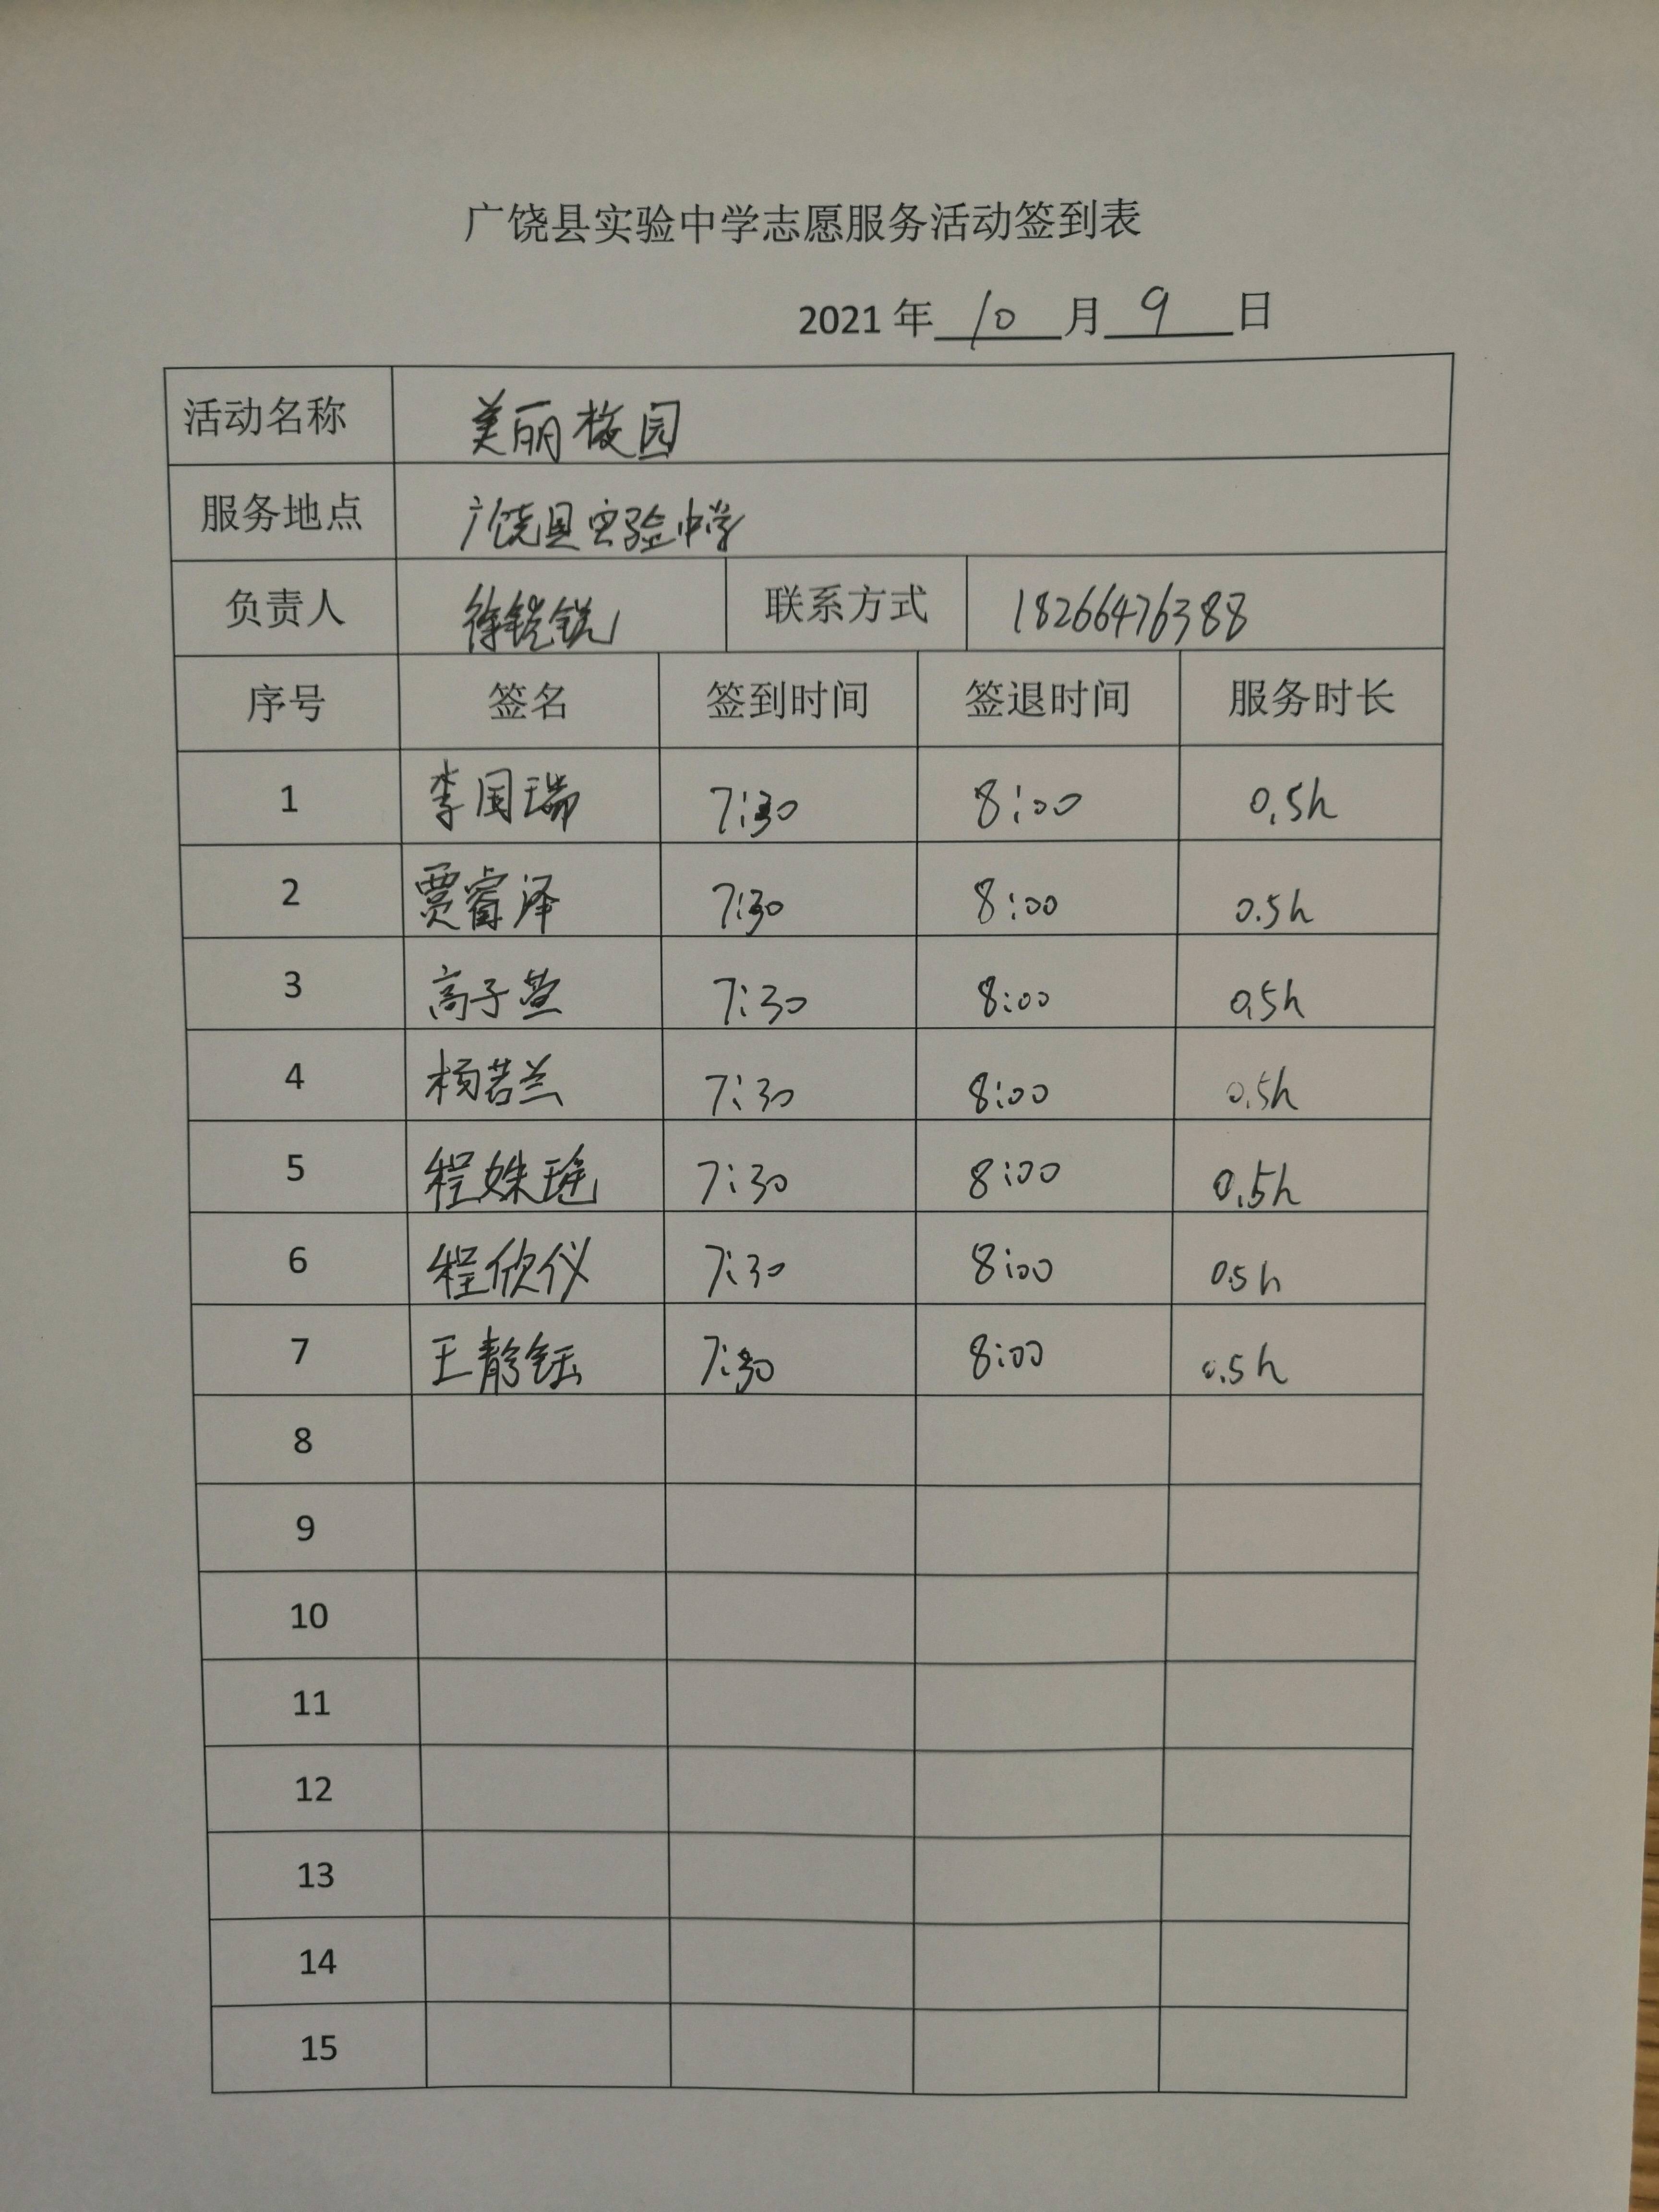 广饶县实验中学志愿服务活动签到表
2021 年 10 月 9 日
活动名称 美丽校园
服务地点 广饶县实验中学
负责人 徐锐锐 联系方式 18266476388
序号 签名 签到时间 签退时间 服务时长
1 李国瑞 7:30 8:00 0.5h
2 贾睿泽 7:30 8:00 0.5h
3 高子萱 7:30 8:00 0.5h
4 杨若兰 7:30 8:00 0.5h
5 程姝瑶 7:30 8:00 0.5h
6 程欣仪 7:30 8:00 0.5h
7 王静钰 7:30 8:00 0.5h
8
9
10
11
12
13
14
15